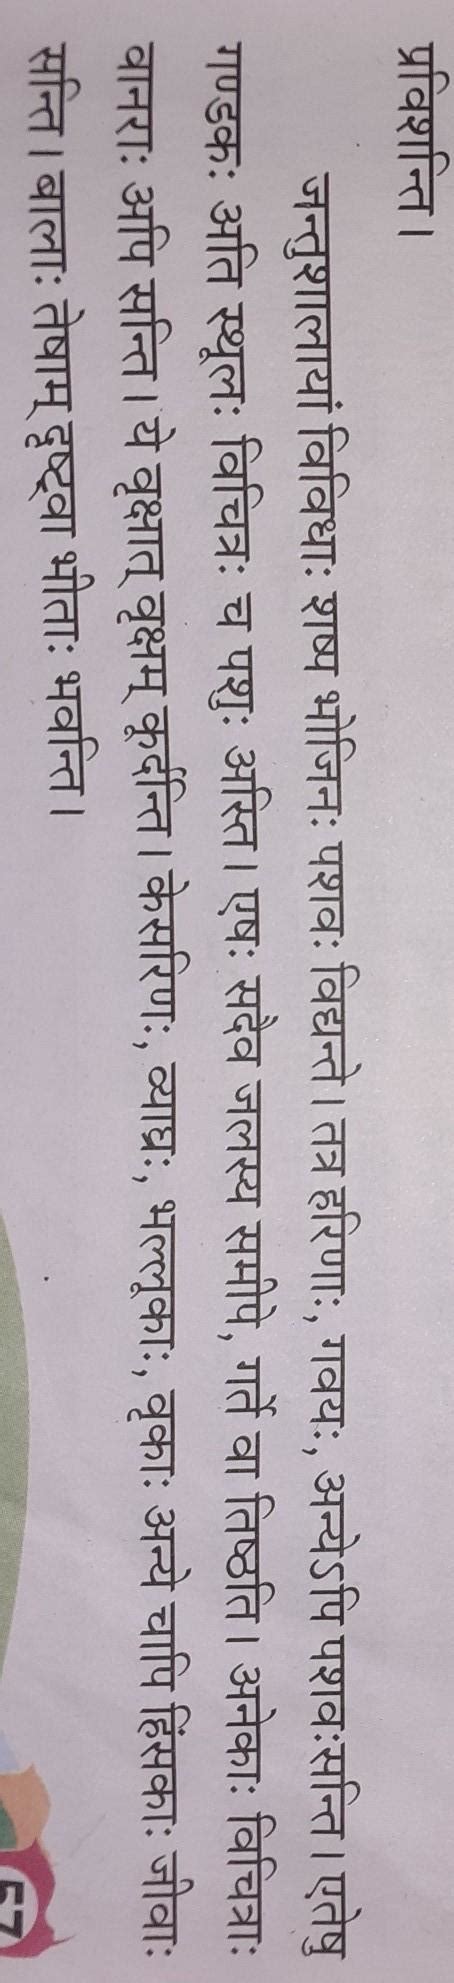 प्रविशन्ति।
जन्तुशालायां विविधाः शष्प भोजिनः पशवः विद्यन्ते। तत्र हरिणाः, गवयः, अन्येऽपि पशवःसन्ति। एतेषु
गण्डकः अति स्थूलः विचित्रः च पशुः अस्ति। एषः सदैव जलस्य समीपे, गर्ते वा तिष्ठति। अनेकाः विचित्राः
वानराः अपि सन्ति। ये वृक्षात् वृक्षम् कूर्दन्ति। केसरिणः, व्याघ्रः, भल्लूकाः, वृकाः अन्ये चापि हिंसकाः जीवाः
सन्ति। बालाः तेषाम् दृष्ट्वा भीताः भवन्ति।
57